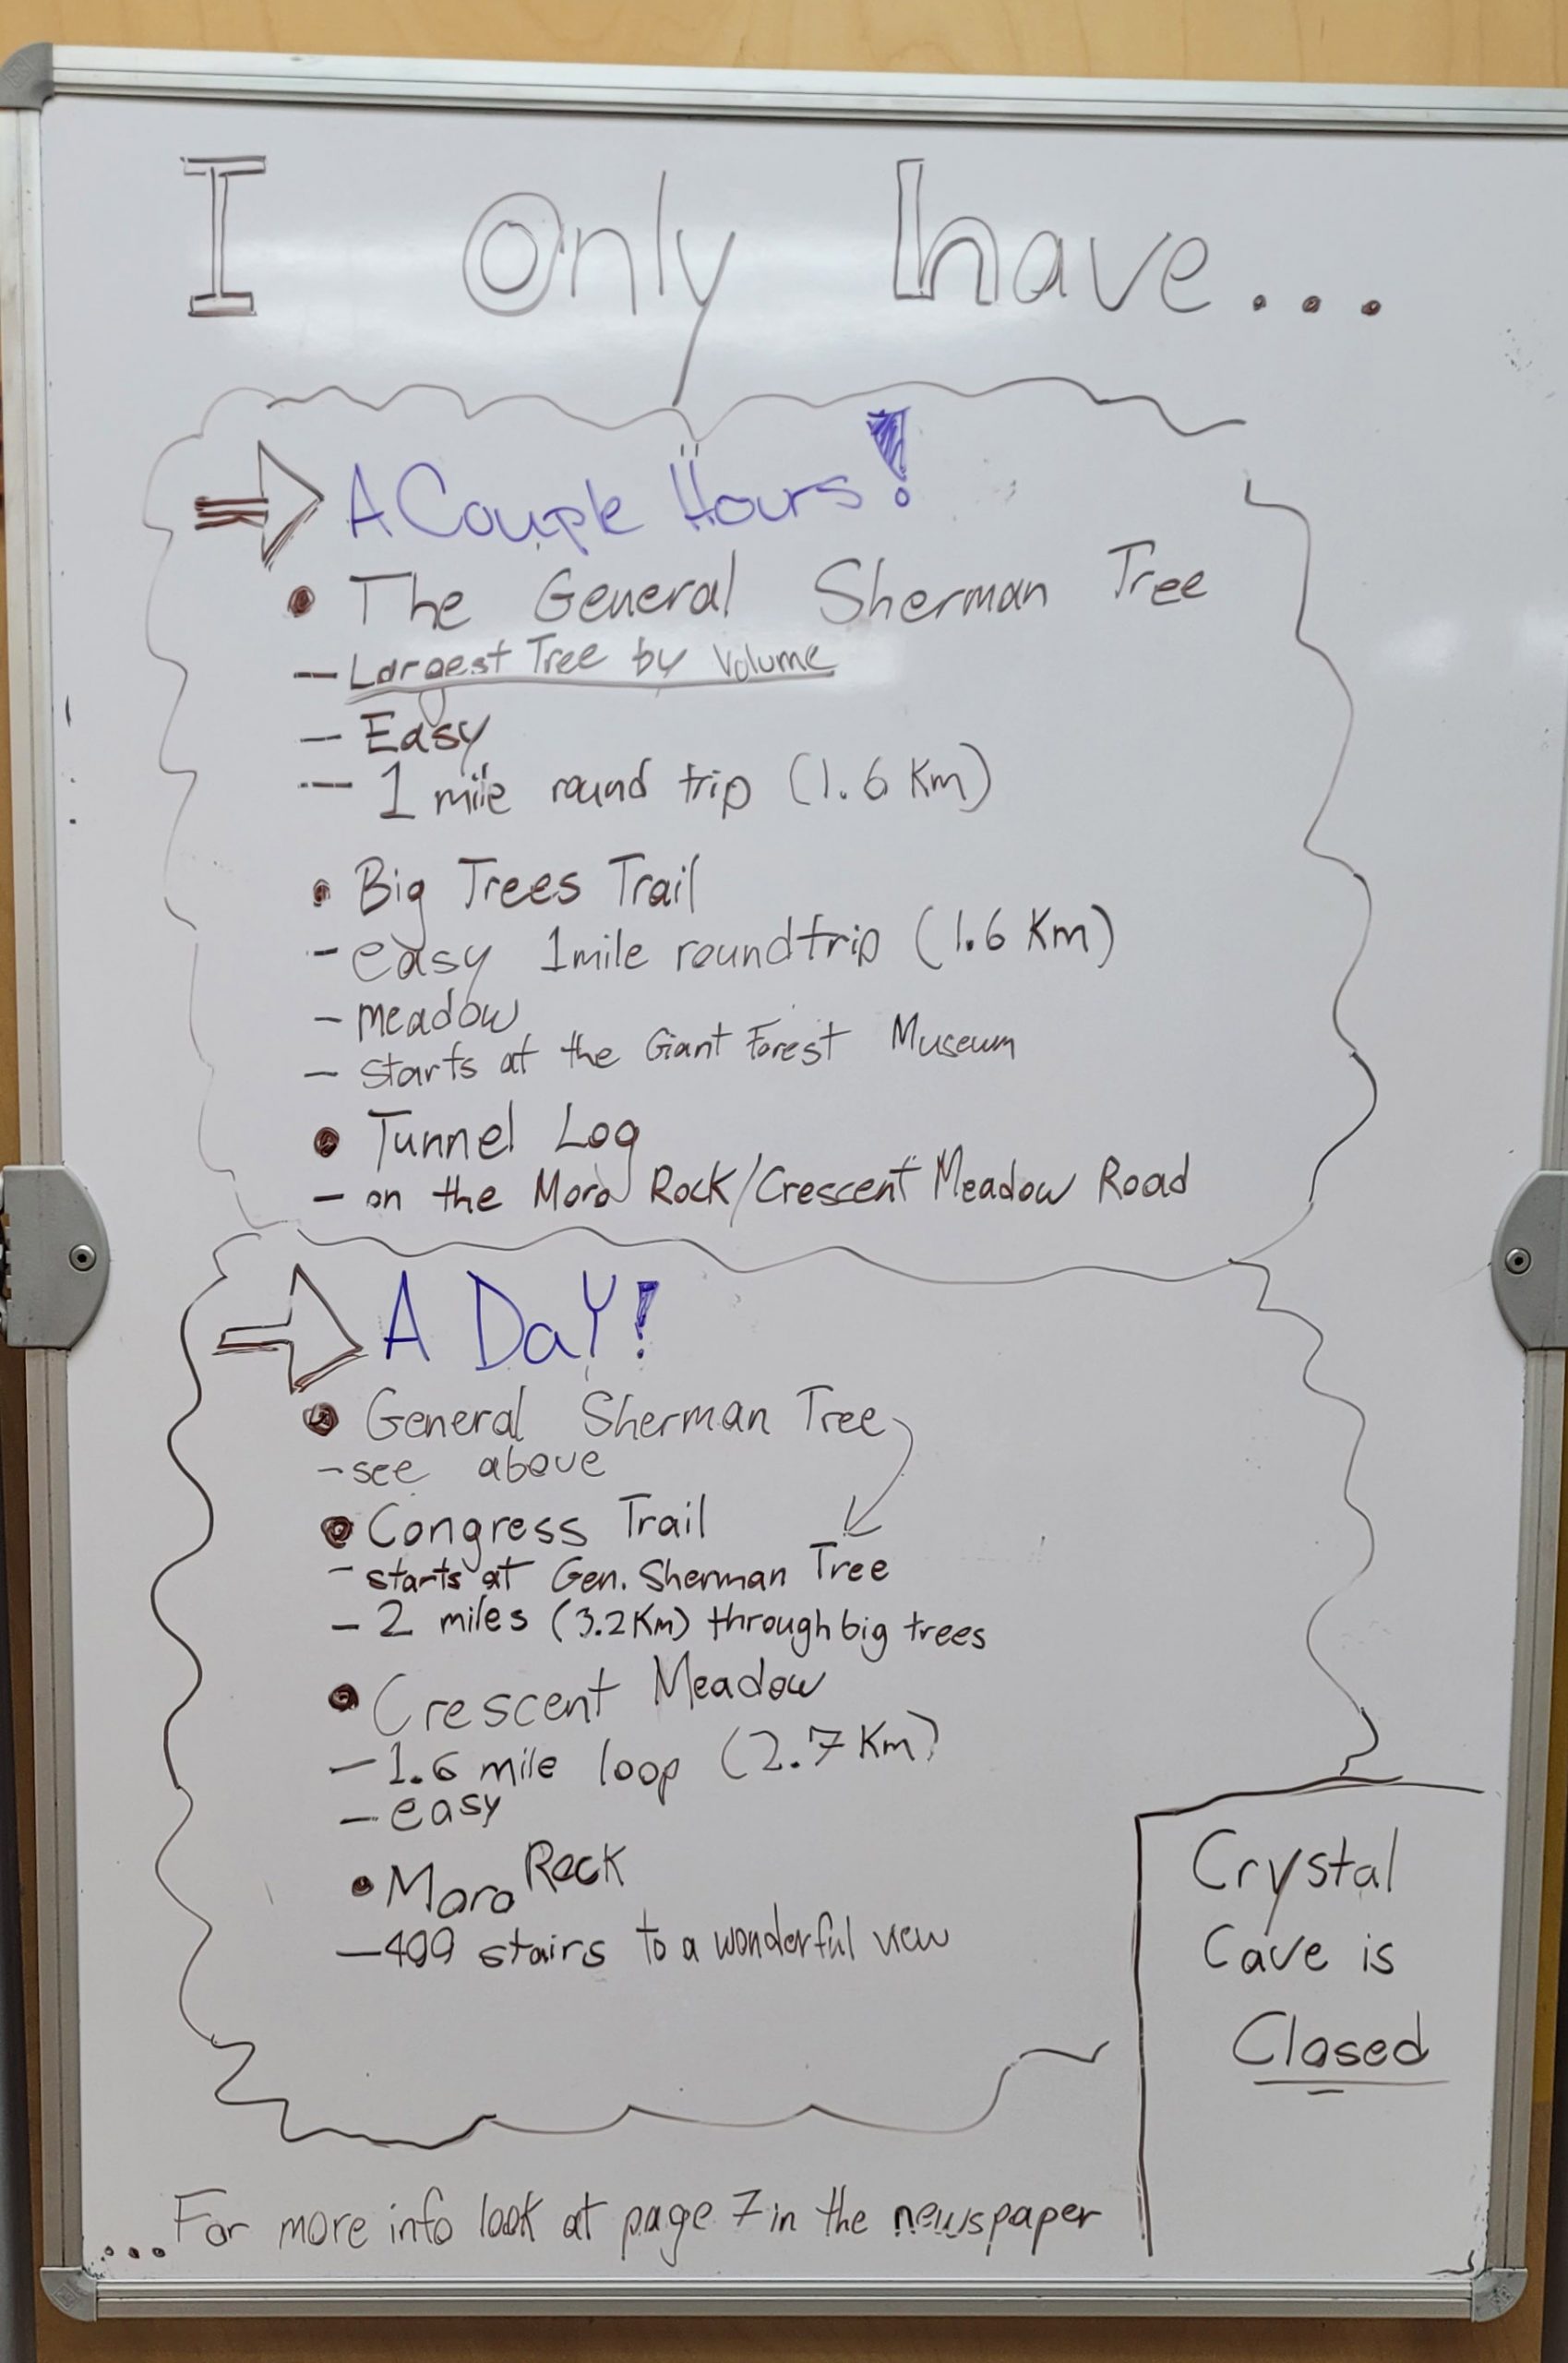 I Only have...
A Couple Hours!
• The General Sherman Tree
- Largest Tree by Volume
- Easy
- 1 mile round trip (1.6 Km)
• Big Trees Trail
- easy 1mile roundtrip (1.6 Km)
- meadow
- starts at the Giant Forest Museum
• Tunnel Log
- on the Moro Rock/Crescent Meadow Road
A DaY!
• General Sherman Tree
- see above
• Congress Trail
- starts at Gen. Sherman Tree
- 2 miles (3.2Km) through big trees
• Crescent Meadow
- 1.6 mile loop (2.7 Km)
- easy
• Moro Rock
- 499 stairs to a wonderful view
Crystal
Cave is
Closed
...For more info look at page 7 in the newspaper